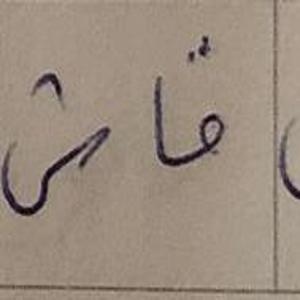 قاش